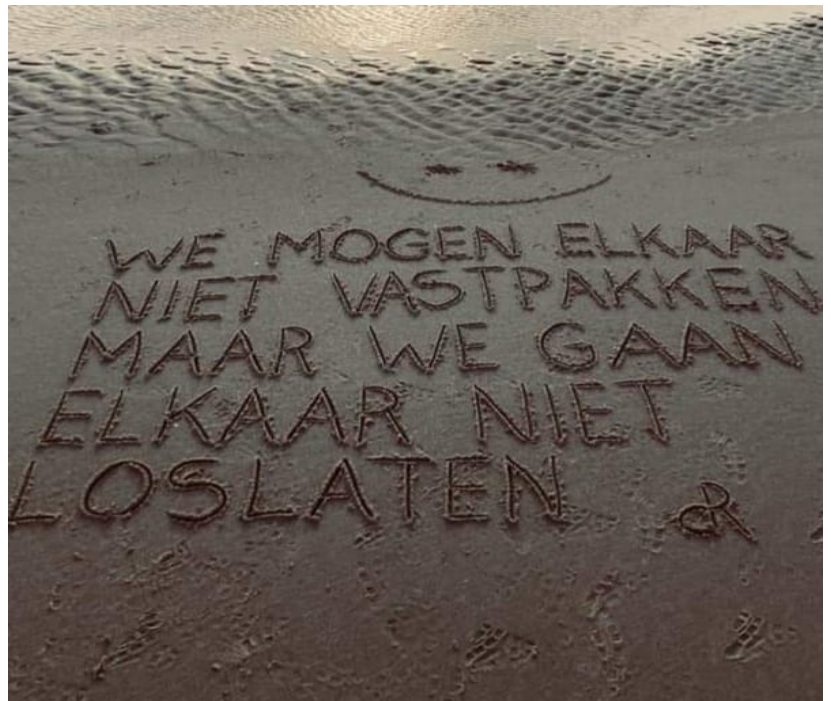 WE MOGEN ELKAAR
NIET VASTPAKKEN
MAAR WE GAAN
ELKAAR NIET
LOSLATEN